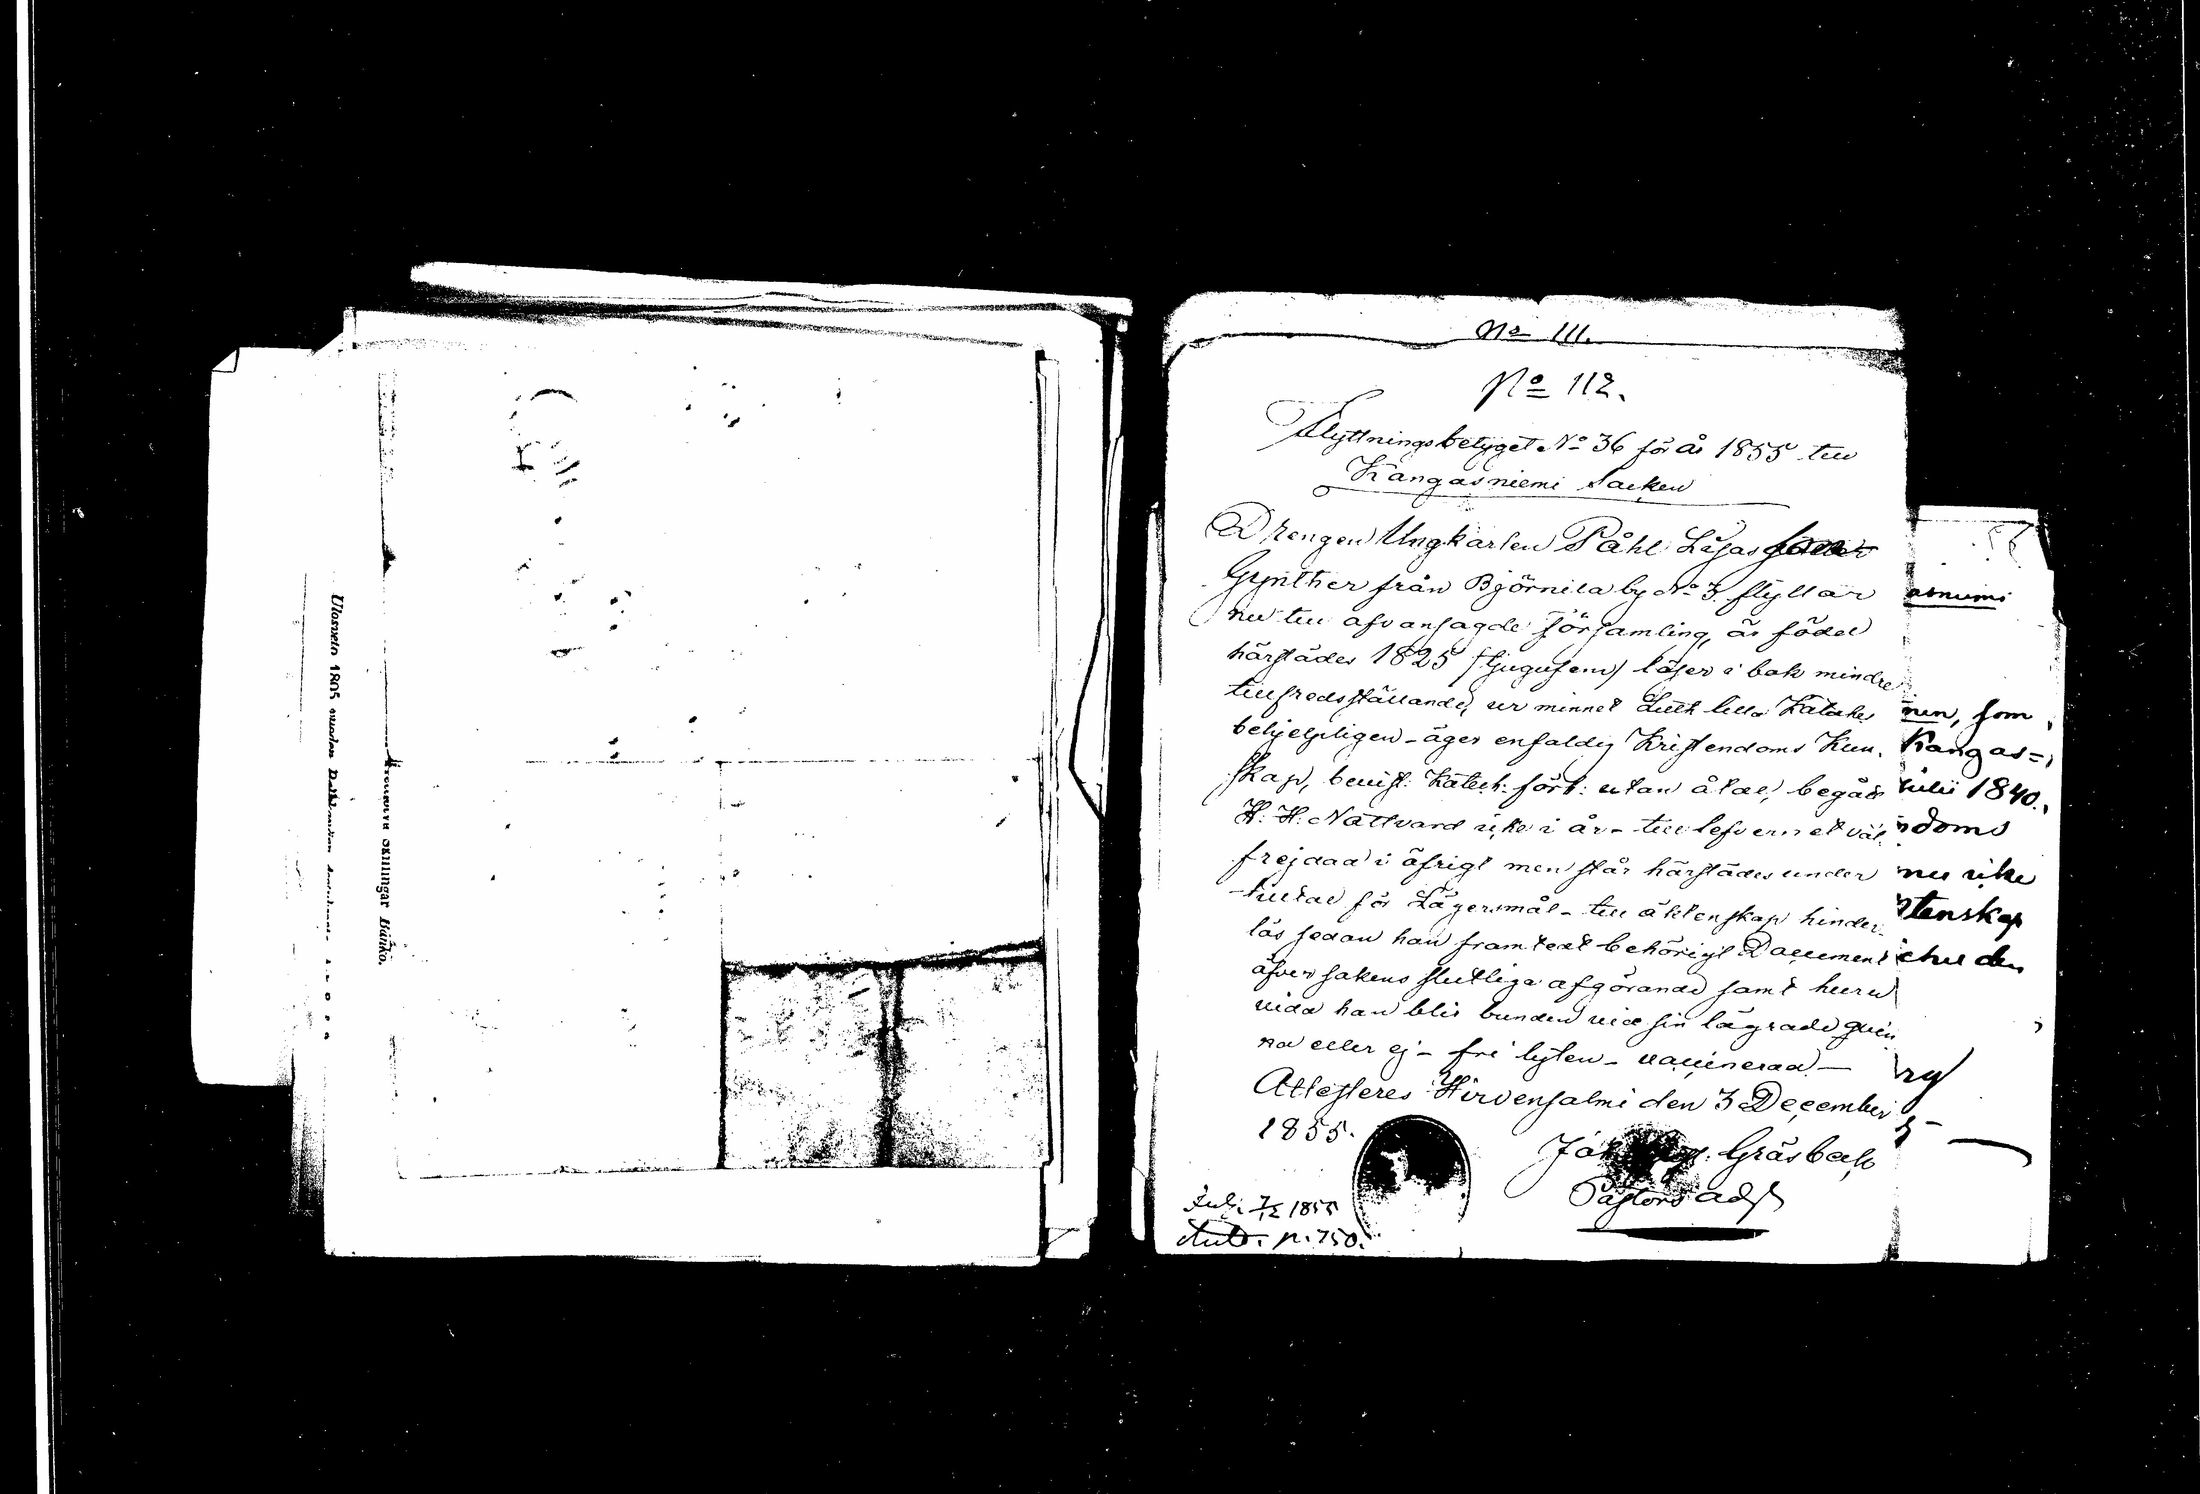 Skillingar Banko.
No 111.
No 112.
Flyttningsbetyget No 36 för år 1855 till
Kangasniemi Socken
Drengen Ungkarlen Påhl Låsasson
Gynther från Björnila by No 3. flyttar
nu till ofvansagde församling, är född
härstädes 1825 /tjugufem/ läser i bok mindre
tillfredsställande, ur minnet Luth lilla Katekes
behjelpligen - äger enfaldig Kristendoms Kun-
skap, bevist: Katech: förh: utan åtal, begått
H. H. Nattvard icke i år - till lefvernet väl
frejdad i öfrigt men står härstädes under
tilltal för Lägersmål - till äktenskap hinder-
lös sedan han framtedt behörigt Document
öfver sakens slutliga afgörande samt huru
vida han blir bunden vid sin lägrade qvin
na eller ej - fri lyten - vaccinerad -
Attesteres Hirvensalmi den 3 December
1855.
Gråsbeck
Pastors adj
7/12 1855
p. 750.
nen, som
Kangas=
Julii 1840.
doms
nu icke
tenskap
den